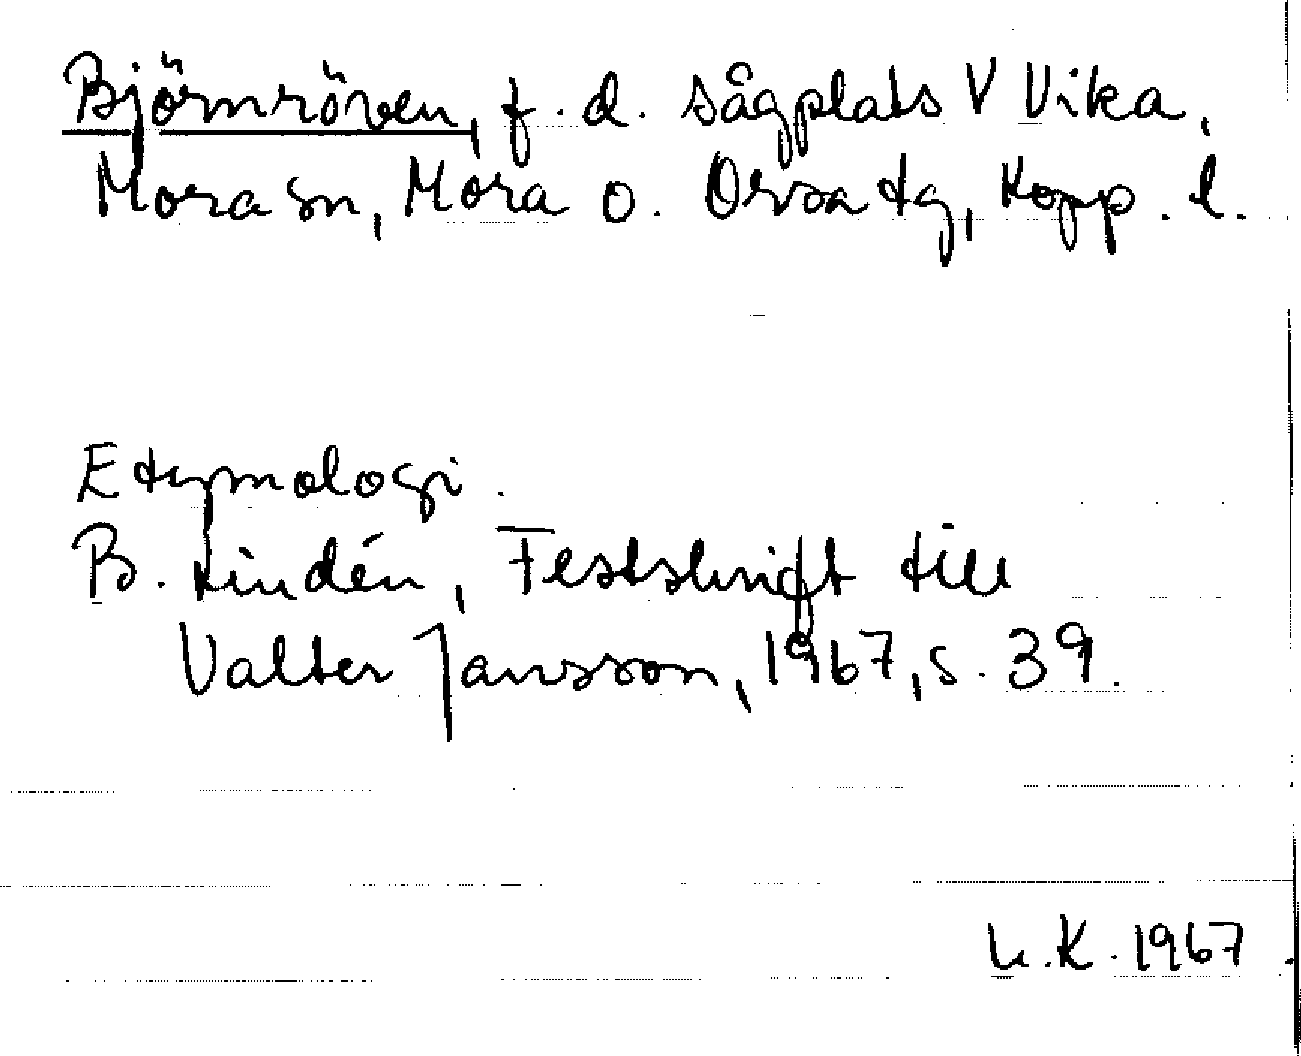 Björnröven, f.d. sågplats V Vika,
Mora sn, Mora o. Orsa tg, Kopp. l.
Etymologi.
B. Lindén, Festskrift till
Valter Jansson, 1967, s. 39.
L.K. 1967